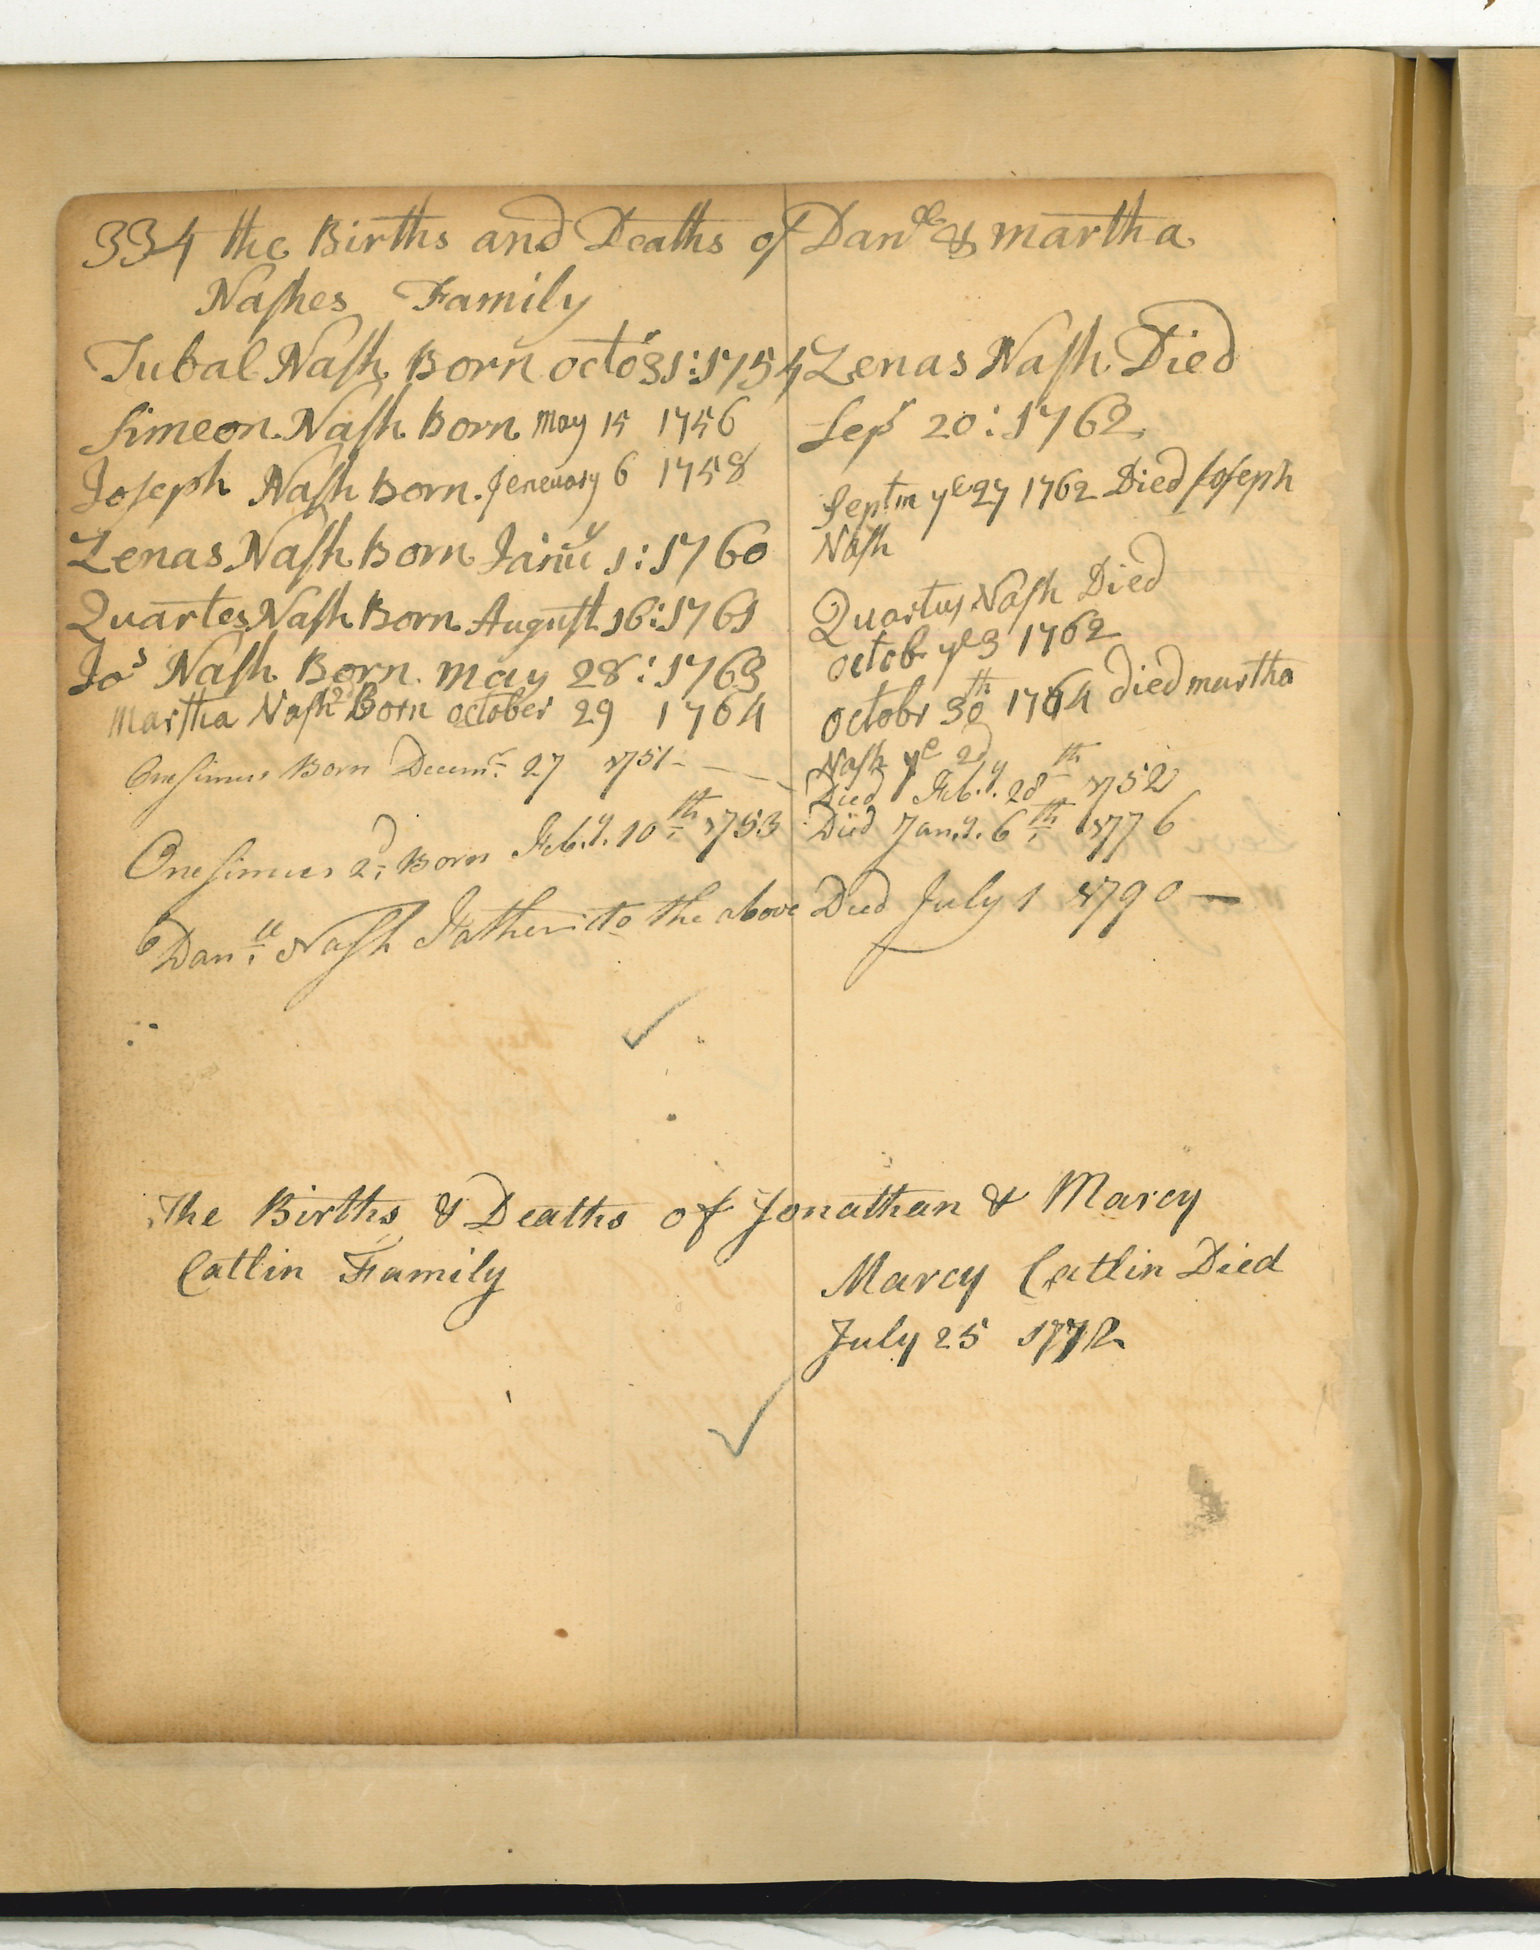 334 the Births and Deaths of Dan^ll & martha
Nashes Family
Tubal Nash Born octo^r 31:1754
Simeon Nash Born May 15 1756
Joseph Nash Born Jeneuary 6 1758
Zenas Nash Born Janu^y 1:1760
Quartes Nash Born August 16:1761
Jo^s Nash Born may 28:1763
Martha Nash 2^d Born october 29 1764
Onesimus Born Decem^r. 27 1751 - —
Onesimus 2^d. Born Feb.y. 10^th. 1753
Dan^ll. Nash Father to the above
Zenas Nash Died
Sep^r 20:1762
Septm y^e 27 1762 Died Joseph
Nash
Quartus Nash Died
octob y^e 3 1762
octobr 30^th 1764 died martha
Nash y^e 2^d
Died Feb.y. 28^th 1752
Died Jan.y. 6^th. 1776
Died July 1 1790 —
The Births & Deaths of Jonathan & Marcy
Catlin Family
Marcy Catlin Died
July 25 1772